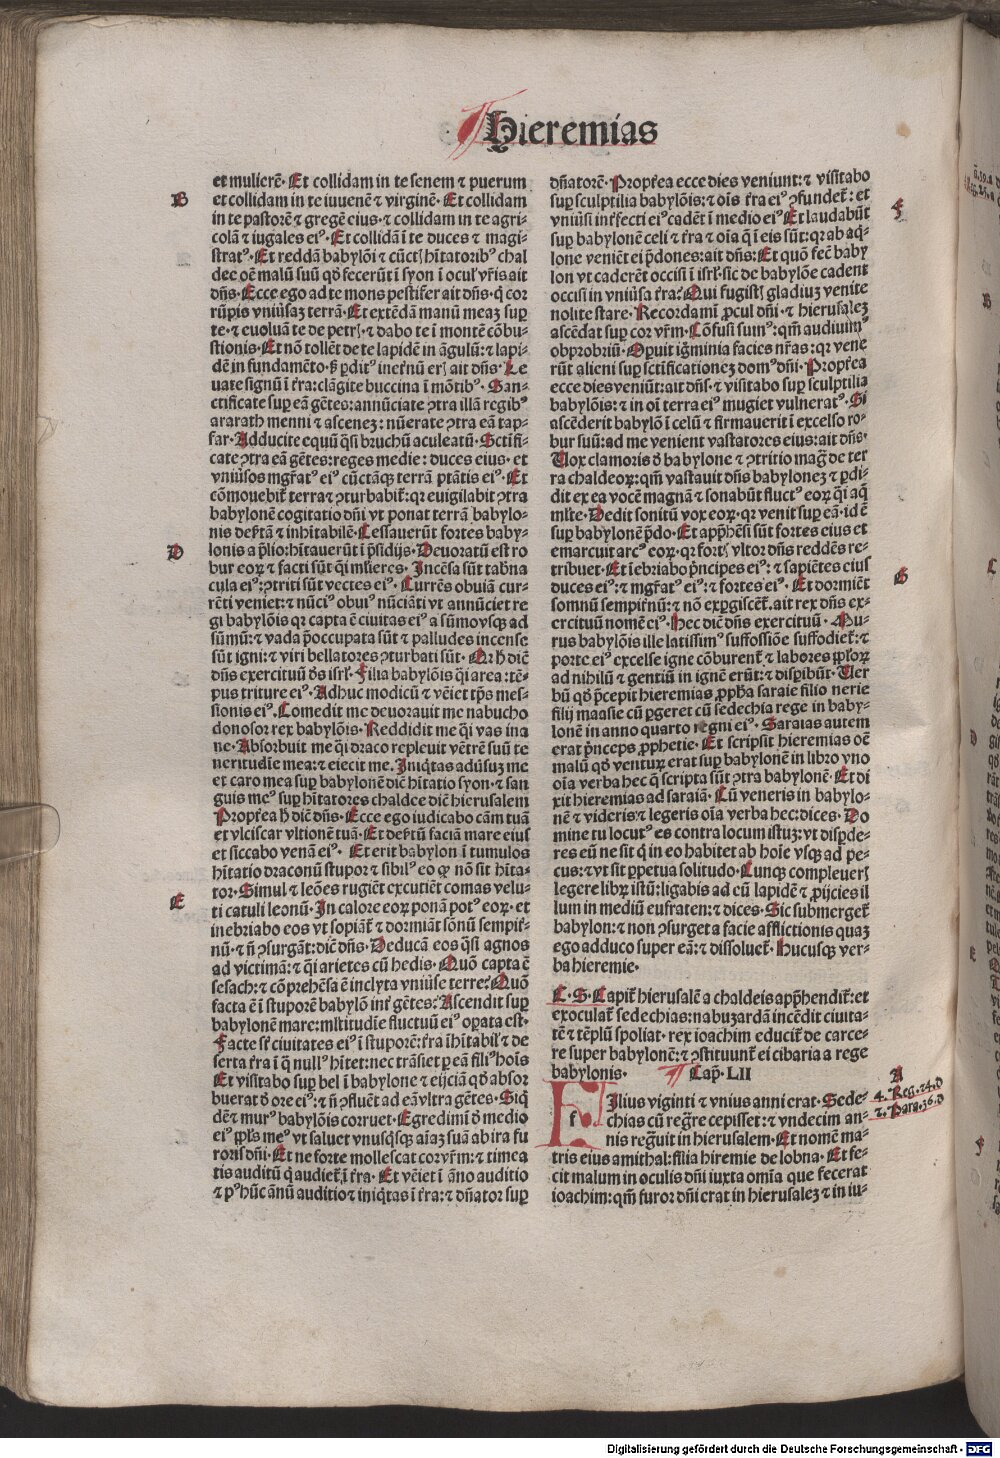 Hieremias
et mulierē. Et collidam in te senem ⁊ puerum
B
et collidam in te iuuenē ⁊ virginē. Et collidam
in te pastorē ⁊ gregē eius. ⁊ collidam in te agri⸗
colā ⁊ iugales eiꝰ. Et collidā ī te duces ⁊ magi⸗
stratꝰ. Et reddā babylōi ⁊ cūctꝭ hītatoribꝰ chal
dee oē malū suū qḋ fecerūt ī syon ī oculꝭ vr̄is ait
dn̄s. Ecce ego ad te mons pestifer ait dn̄s. q̄ cor
rūpis vniūsaꝫ terrā. Et extēdā manū meaꝫ suꝑ
te. ⁊ euoluā te de petrꝭ. ⁊ dabo te ī montē cōbu⸗
stionis. Et nō tollēt de te lapidē in āgulū: ⁊ lapi⸗
dē in fundamēto. sꝫ ꝑditꝰ inet̄nū erꝭ ait dn̄s. Le
uate signū ī t̄ra: clāgite buccina ī mōtibꝰ. San⸗
ctificate suꝑ eā gētes: annūciate ꝯtra illā regibꝰ
ararath menni ⁊ ascenez: nūerate ꝯtra eā tap⸗
sar. Adducite equū q̄si bruchū aculeatū. Sctīfi⸗
cate ꝯtra eā gētes: reges medie: duces eius. et
vniūsos mgr̄atꝰ eiꝰ cūctāqꝫ terrā ptātis eiꝰ. Et
cōmouebit̄ terra ⁊ ꝯturbabit̄: qꝛ euigilabit ꝯtra
babylonē cogitatio dn̄i vt ponat terrā babylo⸗
nis deſt̄tā ⁊ inhītabilē. Cessauerūt fortes baby⸗
D
lonis a p̄lio: hītauerūt ī p̄sidijs. Deuoratū est ro
bur eoꝝ ⁊ facti sūt q̄si ml̄ieres. Incēsa sūt tab̄na
cula eiꝰ: ꝯtriti sūt vectes eiꝰ. Currēs obuiā cur⸗
rēti veniet: ⁊ nūciꝰ obuiꝰ nūciāti vt annūciet re
gi babylōis qꝛ capta ē ciuitas eiꝰ a sūmo vsqꝫ ad
sūmū: ⁊ vada p̄occupata sūt ⁊ palludes incense
sūt igni: ⁊ viri bellatores ꝯturbati sūt. Qꝛ h̄ dic̄
dn̄s exercituū ds̄ isrl̄. Filia babylōis q̄si area: tē⸗
pus triture eiꝰ. Adhuc modicū ⁊ vēiet tp̄s mes⸗
sionis eiꝰ. Comedit me deuorauit me nabucho
donosor rex babylōis. Reddidit me q̄si vas ina
ne. Absorbuit me q̄si draco repleuit vētrē suū te
neritudīe mea: ⁊ eiecit me. Iniq̄tas adūsuꝫ me
et caro mea suꝑ babylonē dic̄ hītatio syon. ⁊ san
guis meꝰ suꝑ hītatores chaldee dic̄ hierusalem
Propt̄ea h̄ dic̄ dn̄s. Ecce ego iudicabo cām tuā
et vlciscar vltionē tuā. Et deſt̄tū faciā mare eius
et siccabo venā eiꝰ. Et erit babylon ī tumulos
hītatio draconū stupor ⁊ sibilꝰ eo ꝙ nō sit hīta⸗
E
tor. Simul ⁊ leōes rugiēt excutiēt comas velu⸗
ti catuli leonū. In calore eoꝝ ponā potꝰ eoꝝ. et
inebriabo eos vt sopiāt̄ ⁊ dormiāt sōnū sempit̄⸗
nū. ⁊ n̄ ꝯsurgāt: dic̄ dn̄s. Deducā eos q̄si agnos
ad victimā: ⁊ q̄si arietes cū hedis. Quō capta ē
sesach: ⁊ cōprehēsa ē inclyta vniūse terre? Quō
facta ē ī stuporē babylō int̄ gētes? Ascendit suꝑ
babylonē mare: ml̄titudīe fluctuū eiꝰ oꝑata est.
Facte st̄ ciuitates eiꝰ ī stuporē: t̄ra īhītabilꝭ ⁊ de
serta t̄ra ī q̄ nullꝰ hītet: nec trāsiet ꝑ eā filiꝰ hoīs
Et visitabo suꝑ bel ī babylone ⁊ eijciā qḋ absor
buerat d̄ ore eiꝰ: ⁊ n̄ ꝯfluēt ad eā vltra gētes. Siq̄
dē ⁊ murꝰ babylōis corruet. Egredimī d̄ medio
eiꝰ ppl̄s meꝰ vt saluet vnusq̄sqꝫ aīaꝫ suā ab ira fu
roris dn̄i. Et ne forte mollescat cor vr̄m: ⁊ timea
tis auditū q̄ audiet̄ ī t̄ra. Et vēiet ī āno auditio
⁊ pꝰ hūc ānū auditio ⁊ iniq̄tas ī t̄ra: ⁊ dn̄ator suꝑ
dn̄atorē. Propt̄ea ecce dies veniunt: ⁊ visitabo
suꝑ sculptilia babylōis: ⁊ oīs t̄ra eiꝰ ꝯfundet̄: et
F
vniūsi int̄fecti eiꝰ cadēt ī medio eiꝰ Et laudabūt
suꝑ babylonē celi ⁊ t̄ra ⁊ oīa q̄ ī eis sūt: qꝛ ab aq̄⸗
lone veniēt ei p̄dones: ait dn̄s: Et quō fec̄ baby
lon vt caderēt occisi ī isrl̄. sic de babylōe cadent
occisi in vniūsa t̄ra. Qui fugistꝭ gladiuꝫ venite
nolite stare. Recordamī ꝓcul dn̄i. ⁊ hierusaleꝫ
ascēdat suꝑ cor vr̄m. Cōfusi sumꝰ: qm̄ audiuimꝰ
obprobriū. Oꝑuit iḡminia facies nr̄as: qꝛ vene
rūt alieni suꝑ sctificationeꝫ domꝰ dn̄i. Propt̄ea
ecce dies veniūt: ait dn̄s. ⁊ visitabo suꝑ sculptilia
babylōis: ⁊ in oī terra eiꝰ mugiet vulneratꝰ. Si
ascēderit babylō ī celū ⁊ firmauerit ī excelso ro⸗
bur suū: ad me venient vastatores eius: ait dn̄s.
Uox clamoris d̄ babylone ⁊ ꝯtritio maḡ de ter
ra chaldeoꝝ: qm̄ vastauit dn̄s babyloneꝫ ⁊ ꝑdi⸗
dit ex ea vocē magnā ⁊ sonabūt fluctꝰ eoꝝ q̄si aq̄
ml̄te. Dedit sonitū vox eoꝝ. qꝛ venit suꝑ eā. id ē
suꝑ babylonē p̄do. Et app̄hēsi sūt fortes eius et
emarcuit arcꝰ eoꝝ. qꝛ fortꝭ vltor dn̄s reddēs re⸗
tribuet. Et īebriabo p̄ncipes eiꝰ: ⁊ sapiētes eius
G
duces eiꝰ: ⁊ mgr̄atꝰ eiꝰ: ⁊ fortes eiꝰ. Et dormiēt
somnū sempit̄nū: ⁊ nō exꝑgiscēt̄. ait rex dn̄s ex⸗
ercituū nomē eiꝰ. Hec dic̄ dn̄s exercituū. Mu⸗
rus babylōis ille latissimꝰ suffossiōe suffodiet̄: ⁊
porte eiꝰ excelse igne cōburent̄ ⁊ labores ppl̄oꝝ
ad nihilū ⁊ gentiū in ignē erūt: ⁊ disꝑibūt. Uer
bū qḋ p̄cepit hieremias ꝓph̄a saraie filio nerie
filij maasie cū ꝑgeret cū sedechia rege in baby⸗
lonē in anno quarto regni eiꝰ. Saraias autem
erat p̄nceps ꝓphetie. Et scripsit hieremias oē
malū qḋ venturꝝ erat suꝑ babylonē in libro vno
oīa verba hec q̄ scripta sūt ꝯtra babylonē. Et di
xit hieremias ad saraiā. Cū veneris in babylo⸗
nē ⁊ videris ⁊ legeris oīa verba hec: dices. Do
mine tu locutꝰ es contra locum istuꝫ: vt disꝑde⸗
res eū ne sit q̄ in eo habitet ab hoīe vsqꝫ ad pe⸗
cus: ⁊ vt sit ꝑpetua solitudo. Cunqꝫ compleuerꝭ
legere librꝝ istū: ligabis ad eū lapidē ⁊ ꝓijcies il
lum in mediū eufraten: ⁊ dices. Sic submerget̄
babylon: ⁊ non ꝯsurget a facie afflictionis quaꝫ
ego adduco super eā: ⁊ dissoluet̄. Hucusqꝫ ver⸗
ba hieremie.
C. S. Capit̄ hierusalē a chaldeis app̄hendit̄: et
exoculat̄ sedechias: nabuzardā incēdit ciuita⸗
tē ⁊ tēplū spoliat. rex ioachim educit̄ de carce⸗
re super babylonē: ⁊ ꝯstituunt̄ ei cibaria a rege
babylonis. Cap̄. LII
A
FIlius viginti ⁊ vnius anni erat. Sede⸗
4. Reg. 24. D
chias cū reḡre cepisset: ⁊ vndecim an⸗
2. Para. 36. D
nis reḡuit in hierusalem. Et nomē ma⸗
tris eius amithal: filia hiremie de lobna. Et fe⸗
cit malum in oculis dn̄i iuxta omīa que fecerat
ioachim: qm̄ furor dn̄i erat in hierusaleꝫ ⁊ in iu⸗
Digitalisierung gefördert durch die Deutsche Forschungsgemeinschaft - DFG